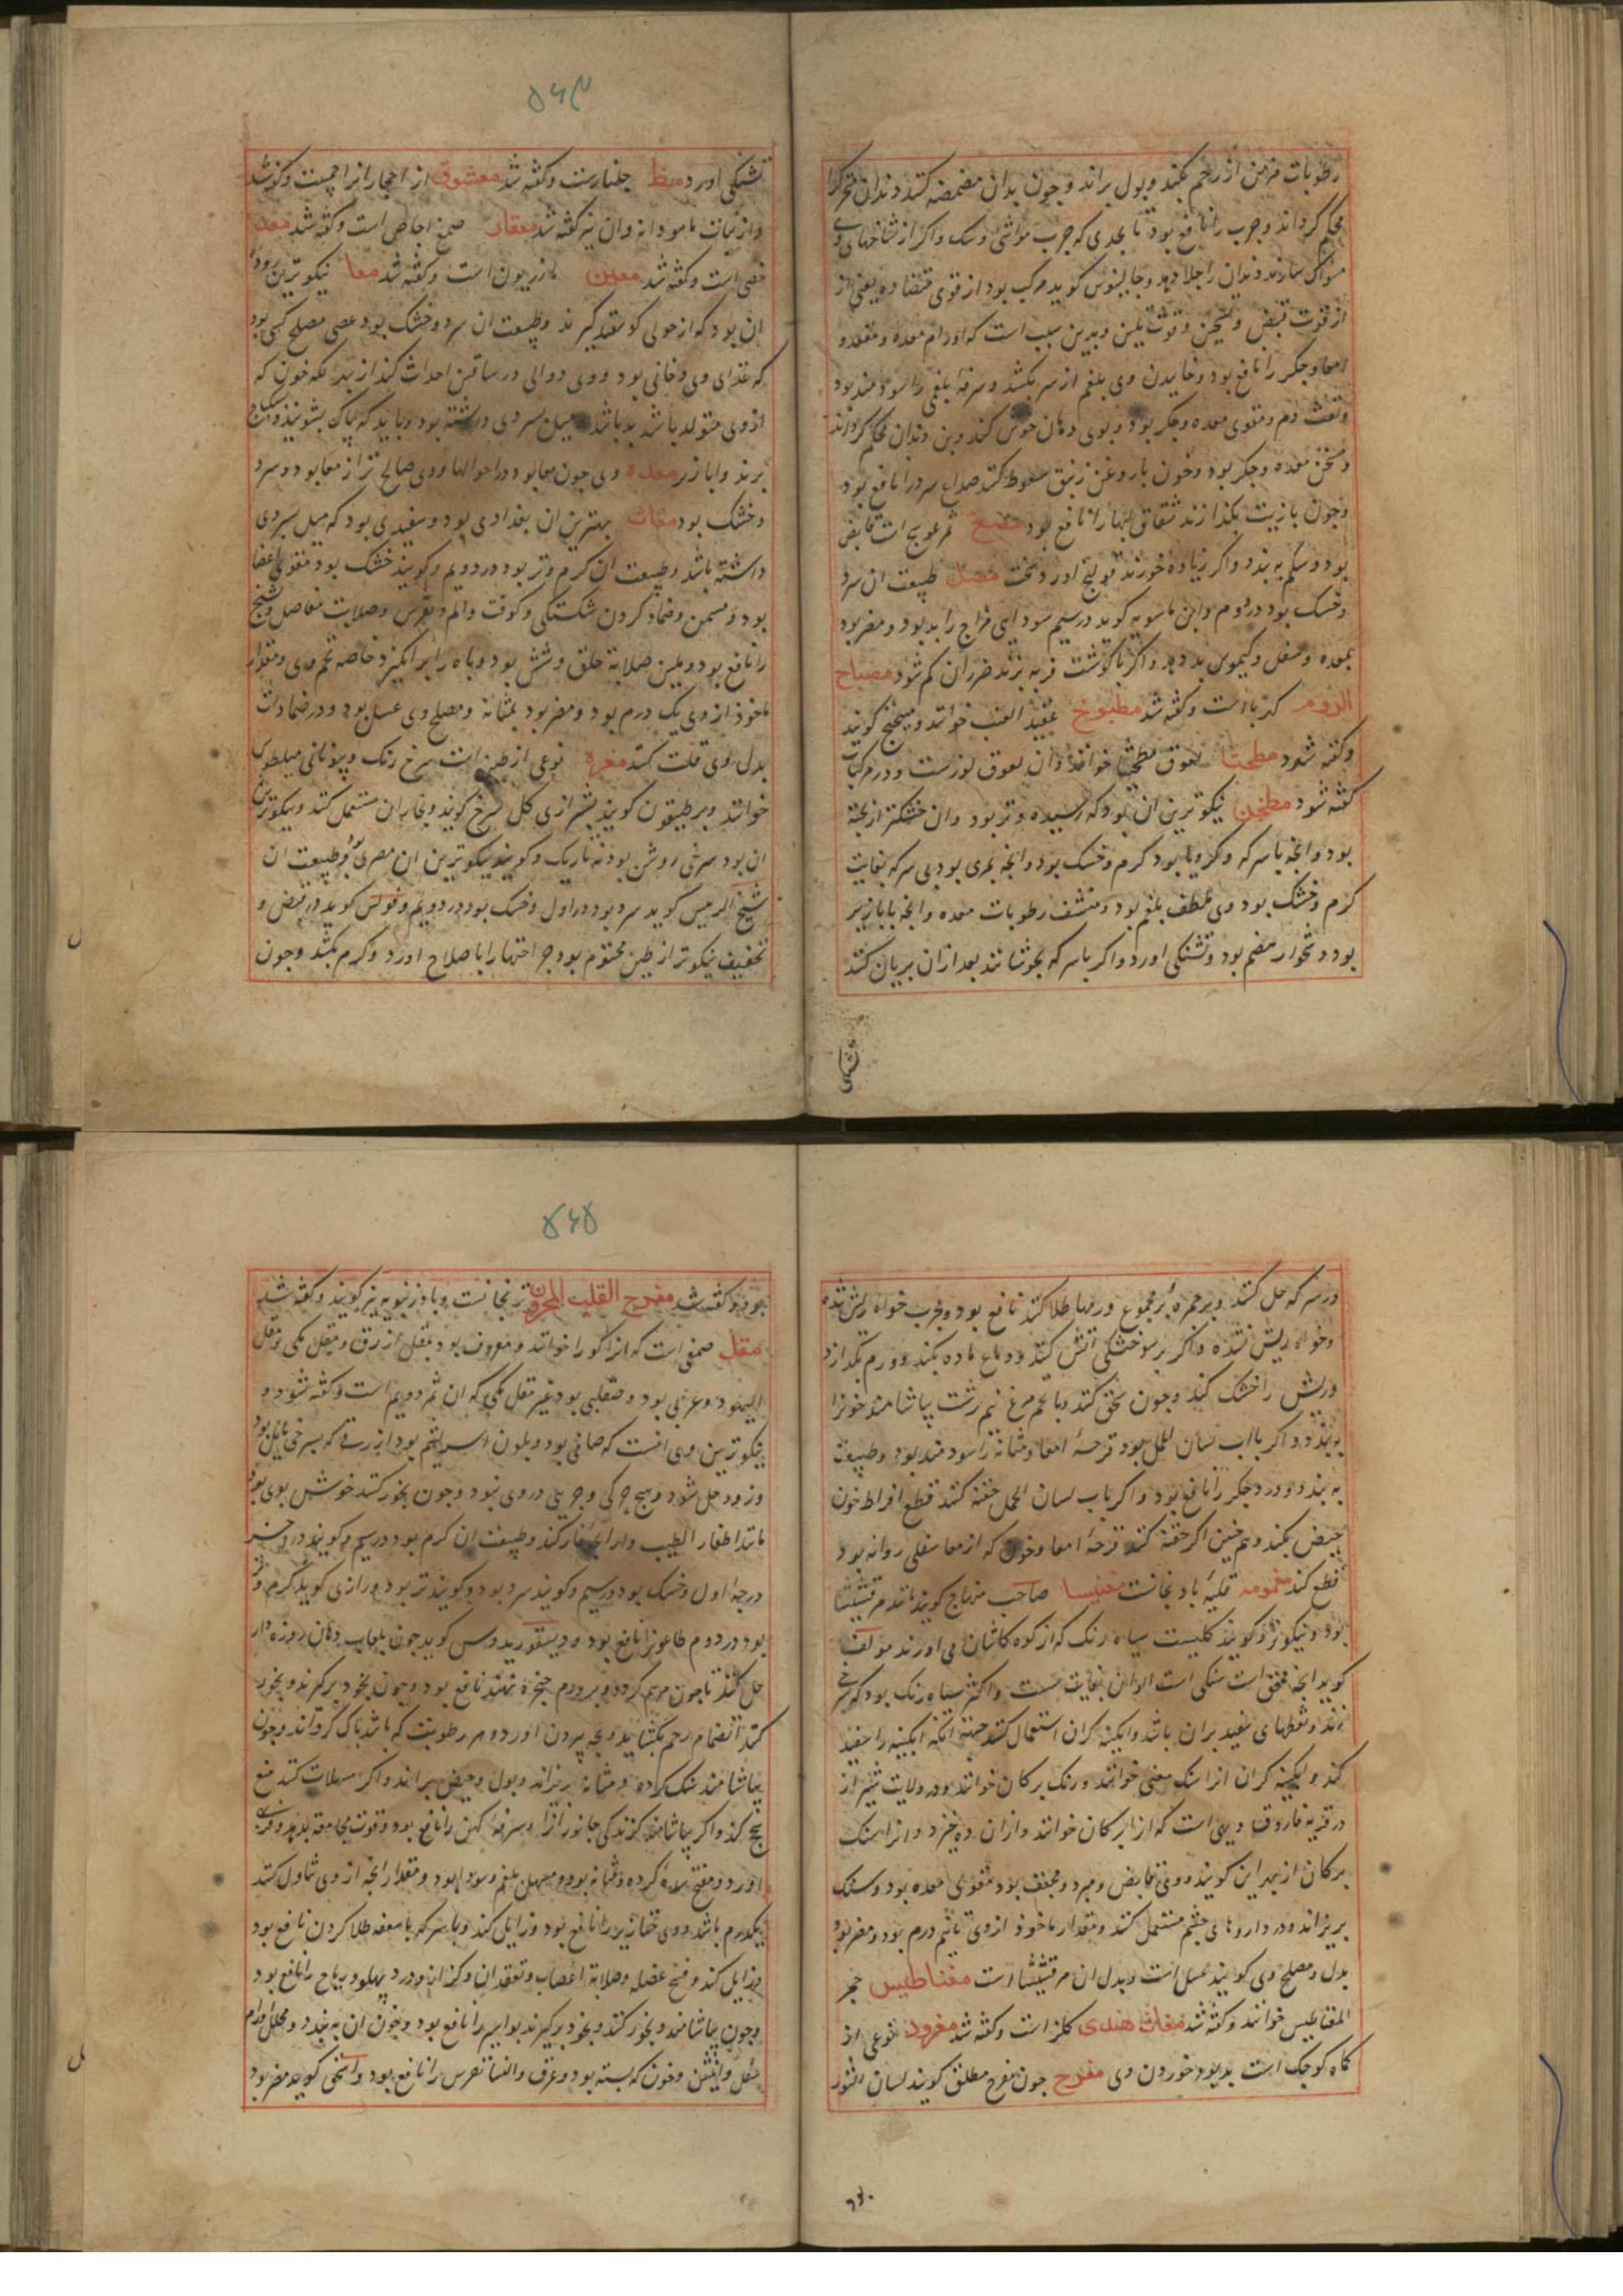 رطوبات مزمن از رحم بکند و بول براند و چون بدان مضمضه کنند دندان متحرک را
محکم کرداند و جرب را نافع بود تا بحدی که جرب مواشی و سک و اکر از شاخهای وی
مسواک سازند دندان را جلا دهد و جالینوس کوید مرکب بود از قوی متضاده یعنی از
از قوت قبض و تسخین و قوت تلیین و بدین سبب است که اورام معده و مقعد و
امعا و جکر را نافع بود و خاییدن وی بلغم از سر بکشد و سرفه بلغمی را سودمند بود
و نفث دم و مقوی معده و جکر بود و بوی دهان خوش کند و بن دندان محکم کرداند
و مسخن معده و جکر بود و چون با روغن زنبق سعوط کنند صداع سرد را نافع بود
و چون با زیت بکدازند شقاق لبها را نافع بود مصع ثمر عوسج است قابض
بود و شکم به بندد و اکر زیاده خورند قولنج اورد سخت مصل طبیعت ان سرد
و خشک بود در دوم و ابن ماسویه کوید در سیم سودایی مزاج را بد بود و مضر بود
بمعده و سفل و کیموس بد دهد و اکر با کوشت فربه پزند ضرر ان کم شود مصباح
الروم کهربا است و کفته شد مطبوخ عقید العنب خوانند و میبختج کویند
و کفته شود مطحثا لعوق مطحثا خوانند و ان لعوق لوزست و در مرکبات
کفته شود مطجن نیکوترین ان بود که رسیده و تر بود و ان خشکتر از پخته
بود و انچه با سرکه و کرویا بود کرم و خشک بود و انچه بمری بود بی سرکه بغایت
کرم و خشک بود وی ملطف بلغم بود و منشف رطوبات معده و انچه با بازیر
بود دشخوار هضم بود و تشنکی اورد و اکر با سرکه بجوشانند بعد ازان بریان کنند
تشنکی
۵۶۴
تشنکی اورد مظ جلنارست و کفته شد معشوق از احجار انرا جمست و کفته شد
و از نبات ماهودانه و ان نیز کفته شد معقار صمغ اجاص است و کفته شد معد
خصی است و کفته شد معین مازریون است و کفته شد معا نیکوترین روده
ان بود که از حولی کوسفند کیرند و طبیعت ان سرد و خشک بود عصی مصلح کسی بود
که غذای وی دخانی بود و وی دوالی در ساقین احداث کند از بهر انکه خون که
از وی متولد باشد بد باشد و میل بسردی داشته بود و باید که پاک بشویند و سکباج
پزند و ابازیر معده وی چون معا بود در احوالها و وی صالح تر از معا بود و سرد
و خشک بود مغاث بهترین ان بغدادی بود و سفیدی بود که میل بسردی
داشته باشد و طبیعت ان کرم و تر بود در دویم و کویند خشک بود مقوی اعضا
بود و مسمن و ضماد کردن شکستکی و کوفت و الم و نقرس و صلابت مفاصل و تشنج
را نافع بود و ملین صلابة حلق و شش بود و باه را برانکیزد خاصه تخم وی و مقدار
ماخوذ از وی یک درم بود و مضر بود بمثانه و مصلح وی عسل بود و در ضمادات
بدل وی قلت کنند مغره نوعی از طین است سرخ رنک و بیونانی میلطوس
خوانند و برطیقون کویند بشیرازی کل سرخ کویند و نجاران مستعمل کنند و نیکوترین
ان بود سرخی روشن بود نه تاریک و کویند نیکوترین ان مصری بود و طبیعت ان
شیخ الرییس کوید سرد بود در اول و خشک بود در دویم و فولس کوید در قبض و
تخفیف نیکوتر از طین مختوم بود جراحتها را باصلاح اورد و کرم بکشد و چون
در سرکه حل کنند و بر حمره و بر مجموع ورمها طلا کنند نافع بود و مجرب خواه ریش شده
و خواه ریش نشده و اکر بر سوختکی اتش کنند ردع ماده بکند و ورم بکدازد
و ریش را خشک کند و چون سحق کنند و با تخم مرغ نیم برشت بیاشامند خون را
به بندد و اکر با اب لسان الحمل بود قرحه امعا و مثانه را سودمند بود و طبیعت
به بندد و درد جکر را نافع بود و اکر باب لسان الحمل حقنه کنند قطع افراط خون
حیض بکند و هم چنین اکر حقنه کنند قرحه امعا و خون که از معا سفلی روانه بود
قطع کند مغمومه قلیه بادنجانست مغنیسا صاحب منهاج کوید مانند مرقشیثا
بود و نیکوتر و کویند کلیست سیاه رنک که از کوه کاشان می اورند مولف
کوید انچه محقق است سنکی است الوان بغایت سست و اکثر سیاه رنک بود که سرخی
زند و نقطهای سفید بران باشد و ابکینه کران استعمال کنند جهة انکه ابکینه را سفید
کند و ابکینه کران انرا سنک مغنی خوانند و رنک برکان خوانند و در ولایت شیراز
در قریه فاروق دیهی است که انرا برکان خوانند و ازان ده خیزد و انرا سنک
برکان از بهر این کویند و وی قابض و مبرد و مجفف بود مقوی معده بود و سنک
بریزاند و در داروهای چشم مستعمل کنند و مقدار ماخوذ از وی تا نیم درم بود و مضر بود
بدل و مصلح وی کویند عسل است و بدل ان مرقشیثا است مغناطیس حجر
المغناطیس خوانند و کفته شد مغاث هندی کلز است و کفته شد مغرود نوعی از
کماه کوچک است بد بود خوردن وی مفرح چون مفرح مطلق کویند لسان الثور
۵۶۵
بود و کفته شد مفرح القلب المحزون ترنجانست و بادرنبویه نیز کویند و کفته شد
مقل صمغی است که انرا کور خوانند و معروف بود بمقل ازرق و مقل مکی و مقل
الیهود و عربی بود و صقلبی بود غیر مقل مکی که ان ثمر دویم است و کفته شود و
نیکوترین وی انست که صافی بود و بلون اسریشم بود ازرقی که بسرخی مایل بود
و زود حل شود و هیچ چرکی و چربی دروی نبود و چون بخور کنند خوش بوی بود
مانند اظفار الطیب و از رایحه غار کند و طبیعت ان کرم بود در سیم و کویند در اخر
درجه اول و خشک بود در سیم و کویند سرد بود و کویند تر بود و رازی کوید کرم و تر
بود در دوم طاعونرا نافع بود و دیسقوریدوس کوید چون بلعاب دهان روزه دار
حل کنند تا چون مرهم کردد و بر ورم حنجره نهند نافع بود و چون بخود برکیرند و بخور
کنند انضمام رحم بکشاید و بچه بیرون اورد و هر رطوبت که باشد پاک کرداند و چون
بیاشامند سنک کرده و مثانه بریزاند و بول و حیض براند و اکر بمسهلات کنند منع
سحج کند و اکر بیاشامند کزندکی جانورانرا و سرفه کهن را نافع بود و قوت مجامعة بدهد و فربهی
اورد و مفتح سده کرده و مثانه بود و مسهل بلغم و سودا بود و مقدار انچه از وی تناول کنند
یکدرم باشد و وی خنازیر را نافع بود و زایل کند و با سرکه بر سعفه طلا کردن نافع بود
و زایل کند و فسخ عضله و صلابة اعصاب و تعقد ان و کزاز و درد پهلو و ریاح را نافع بود
و چون بیاشامند و بخور کنند و بخود برکیرند بواسیر را نافع بود و خون ان به بندد و محلل اورام
سفل و انثیین و خون که بسته بود و عرق و النسا نقرس را نافع بود و اسحق کوید مضر بود